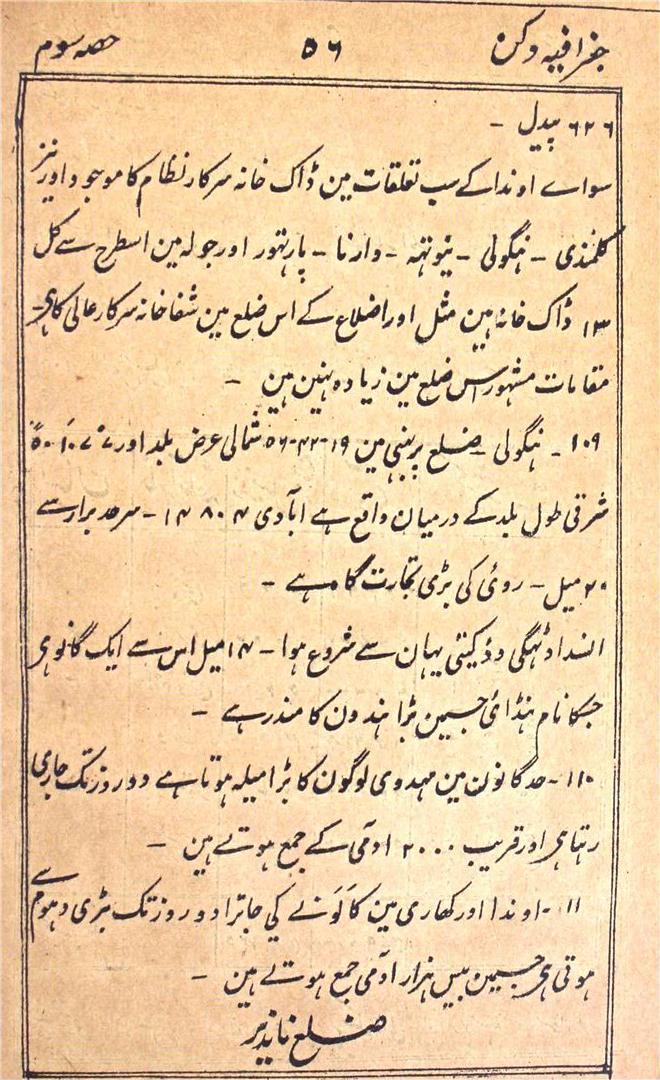 جغرافیہ دکن ۵۶ حصہ سوم
۶۲۶ پیدل -
سواے اوندا کے سب تعلقات مین ڈاک خانہ سرکار نظام کا موجود اور نیز
کلمنڈی - ہنگولی - نیونتہ - وارنا - پارتہور اور جولہ مین اسطرح سے کل
۱۳ ڈاک خانہ ہین مثل اور اضلاع کے اس ضلع مین شفا خانہ سرکار عالی کا ہی-
مقامات مشہور اس ضلع مین زیادہ نہین ہین -
۱۰۹ - ہنگولی - ضلع پربہنی مین ۱۹-۴۲-۵۶ شمالی عرض بلد اور ۷۷ْ ۱۰َ ۵۰ً
شرقی طول بلد کے درمیان واقع ہے ابادی ۱۴۸۰۴ - سرحد برار سے
۲۰ میل - روئی کی بڑی تجارت گاہ ہے -
انسداد ٹہگی و ڈکیتی یہان سے شروع ہوا - ۱۴ میل اس سے ایک گانو ہی
جسکا نام ہنڈائی جسمین بڑا ہندون کا مندر ہے -
۱۱۰ - حدگانون مین مہدوی لوگون کا بڑا میلہ ہوتا ہے دو روز تک جاری
رہتا ہی اور قریب ۲۰۰۰ ادمی کے جمع ہوتے ہین -
۱۱۱ - اوندا اور کھاری مین کانونے کی جاترا دو روز تک بڑی دہوم سے
ہوتی ہی جسمین بیس ہزار ادمی جمع ہوتے ہین -
ضلع نانڈیر